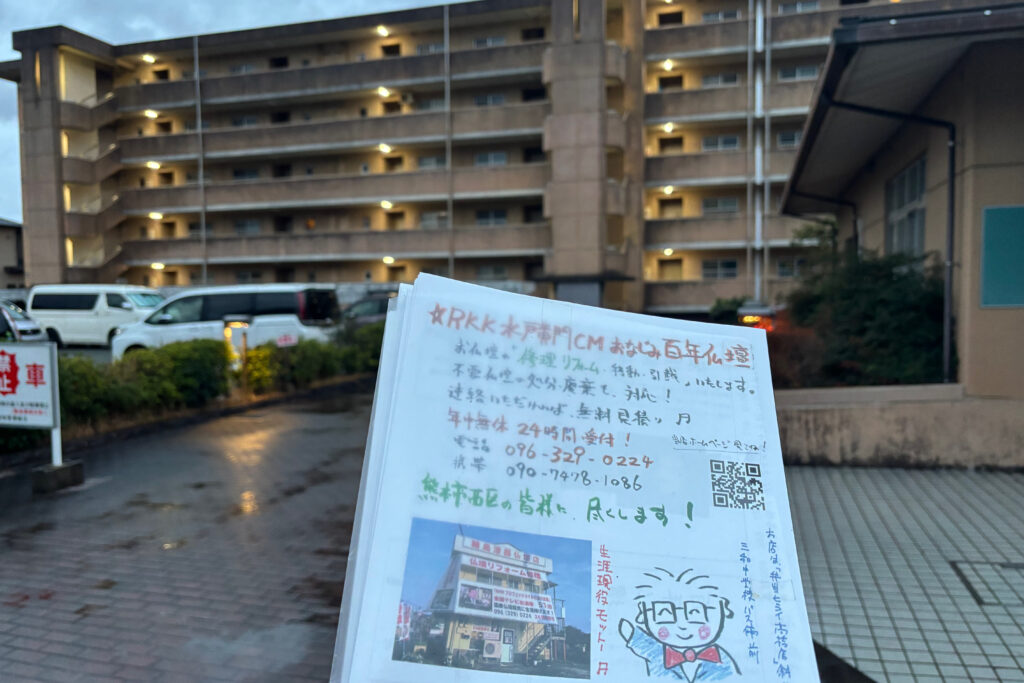 ☆RKK水戸黄門CMおなじみ百年仏壇
お仏壇の修理リフォーム、移動、引越、いたします。
不要仏壇の処分、廃棄も、対応!
連絡いただければ、無料見積り
年中無休 24時間受付!
当店ホームページ見てね!
電話 096-329-0224
携帯 090-7478-1086
熊本市西区の皆様に、尽くします!
仏壇リフォーム
生涯現役モットー
三和中学校バス停前
禁止
車